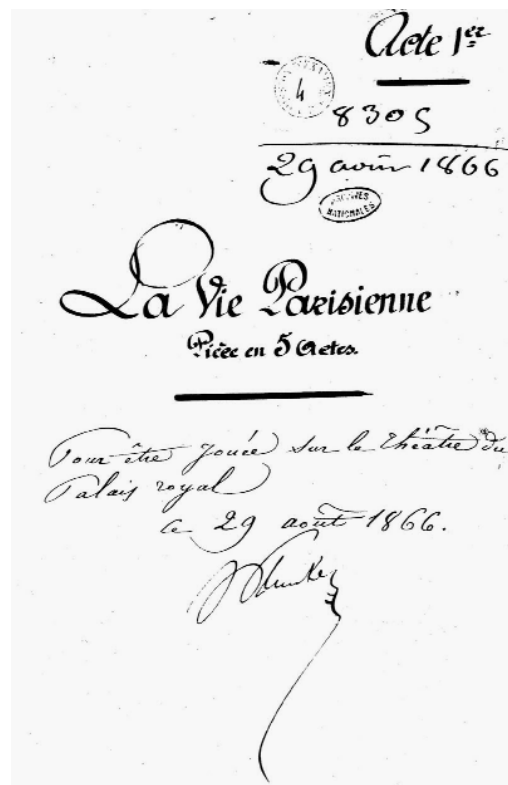 Acte 1er
4
8305
29 août 1866
ARCHIVES
NATIONALES
La Vie Parisienne
Pièce en 5 Actes.
Pour être Jouée sur le Théâtre du
Palais royal
ce 29 août 1866.